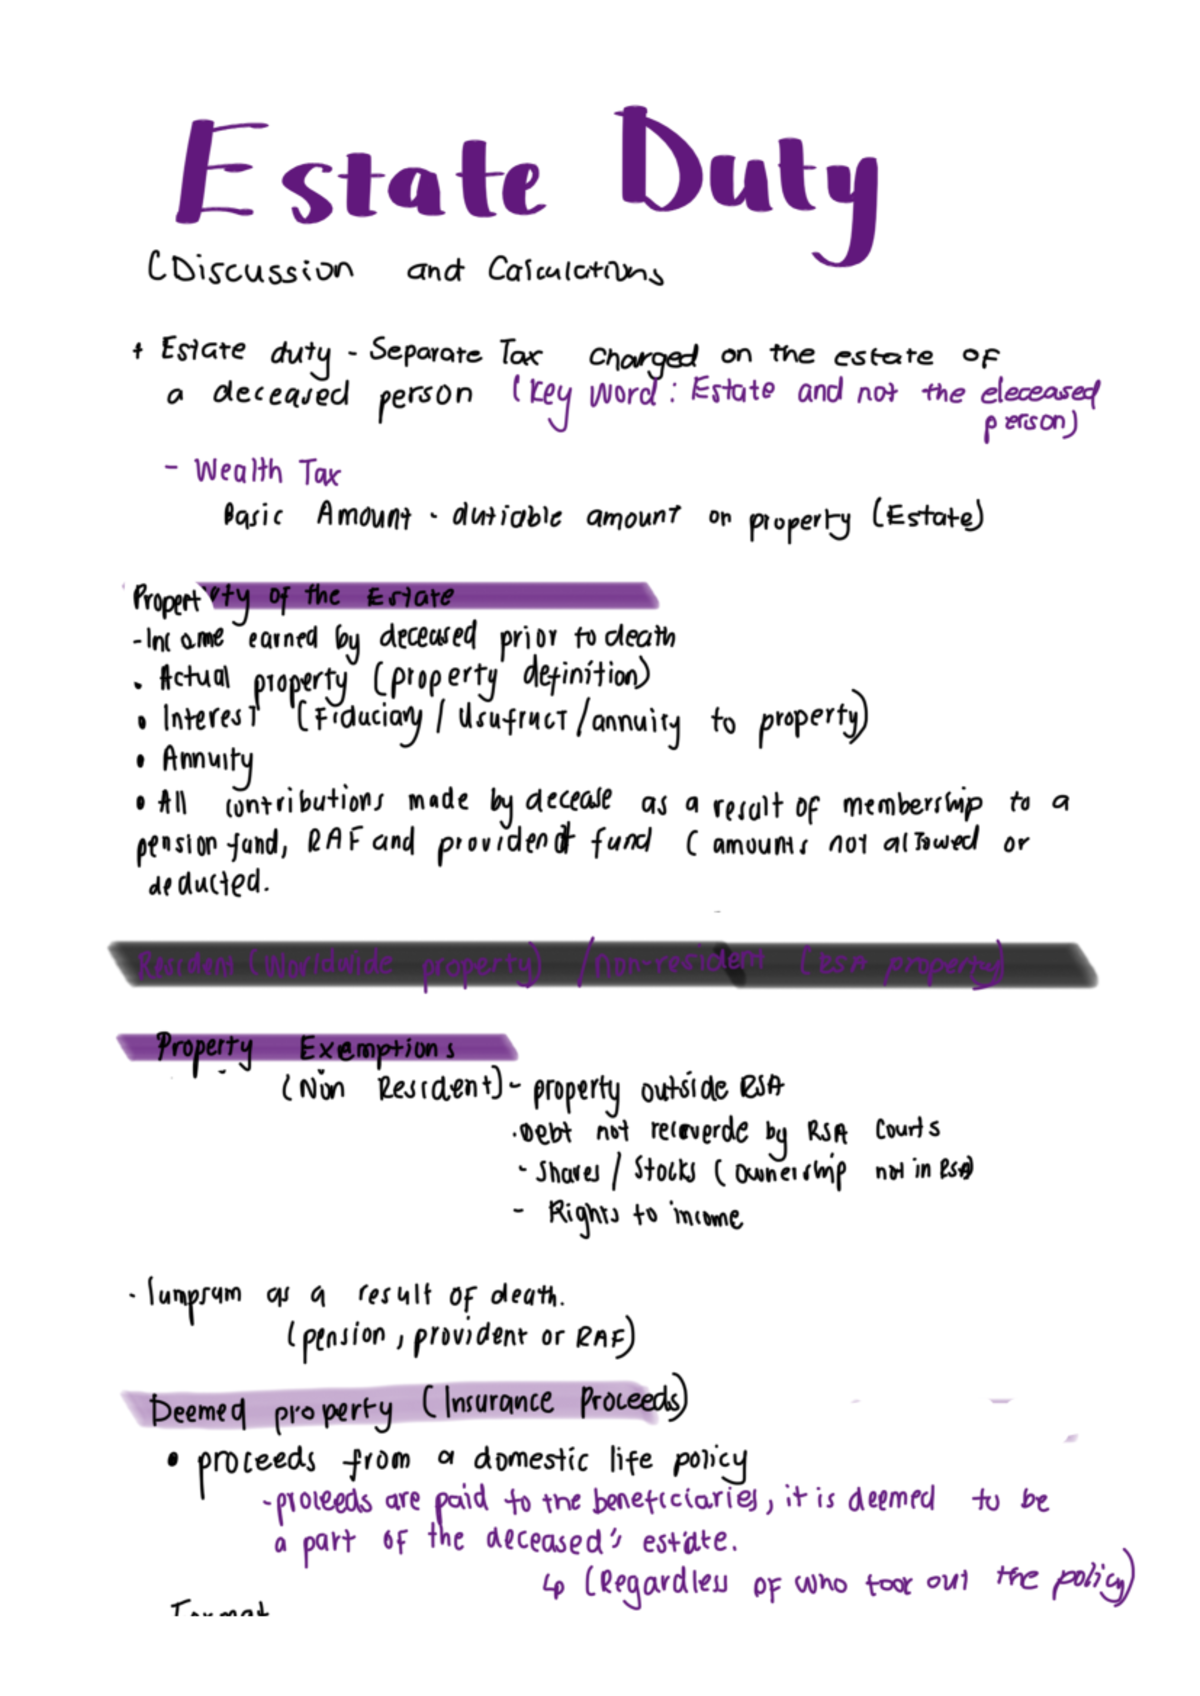 Estate Duty
(Discussion and Calculations
+ Estate duty - Separate Tax charged on the estate of
a deceased person (key word: Estate and not the deceased
person)
- Wealth Tax
Basic Amount - dutiable amount on property (Estate)
Property of the Estate
- Income earned by deceased prior to death
• Actual property (property definition)
• Interest (Fiduciary / Usufruct / annuity to property)
• Annuity
• All contributions made by decease as a result of membership to a
pension fund, RAF and provident fund (amounts not allowed or
deducted.
Resident (Worldwide property) / non-resident (RSA property)
Property Exemptions
(Non Resident) - property outside RSA
• Debt not recoverde by RSA Courts
- Shares / Stocks (ownership not in RSA)
- Rights to income
- lumpsum as a result of death.
(pension, provident or RAF)
Deemed property (Insurance Proceeds)
• proceeds from a domestic life policy
- proceeds are paid to the beneficiaries, it is deemed to be
a part of the deceased's estate.
↳ (Regardless of who took out the policy)